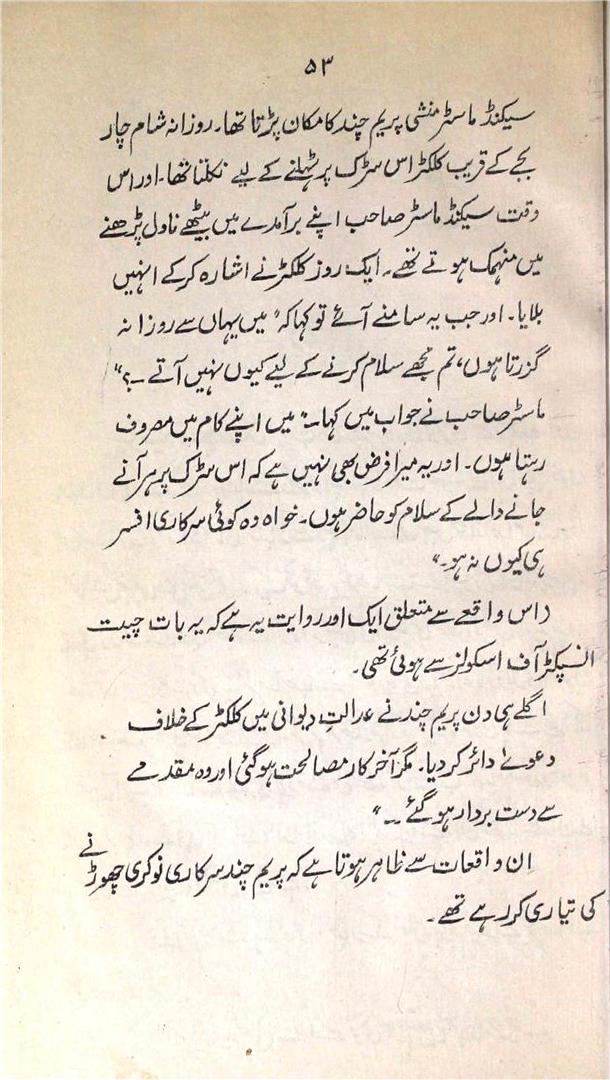 ۵۳
سیکنڈ ماسٹر منشی پریم چند کا مکان پڑتا تھا۔ روزانہ شام چار
بجے کے قریب کلکٹر اس سڑک پر ٹہلنے کے لیے نکلتا تھا۔ اور اس
وقت سیکنڈ ماسٹر صاحب اپنے برآمدے میں بیٹھے ناول پڑھنے
میں منہمک ہوتے تھے۔ ایک روز کلکٹر نے اشارہ کرکے انہیں
بلایا۔ اور جب یہ سامنے آئے تو کہا کہ "میں یہاں سے روزانہ
گزرتا ہوں، تم مجھے سلام کرنے کے لیے کیوں نہیں آتے۔؟"
ماسٹر صاحب نے جواب میں کہا۔" میں اپنے کام میں مصروف
رہتا ہوں۔ اور یہ میرا فرض بھی نہیں ہے کہ اس سڑک پر ہر آنے
جانے والے کے سلام کو حاضر ہوں۔ خواہ وہ کوئی سرکاری افسر
ہی کیوں نہ ہو۔"
(اس واقعے سے متعلق ایک اور روایت یہ ہے کہ یہ بات چیت
انسپکٹر آف اسکولز سے ہوئی تھی۔
اگلے ہی دن پریم چند نے عدالتِ دیوانی میں کلکٹر کے خلاف
دعوےٰ دائر کر دیا۔ مگر آخر کار مصالحت ہو گئی اور وہ مقدمے
سے دست بردار ہو گئے ۔۔"
اِن واقعات سے ظاہر ہوتا ہے کہ پریم چند سرکاری نوکری چھوڑنے
کی تیاری کر رہے تھے۔